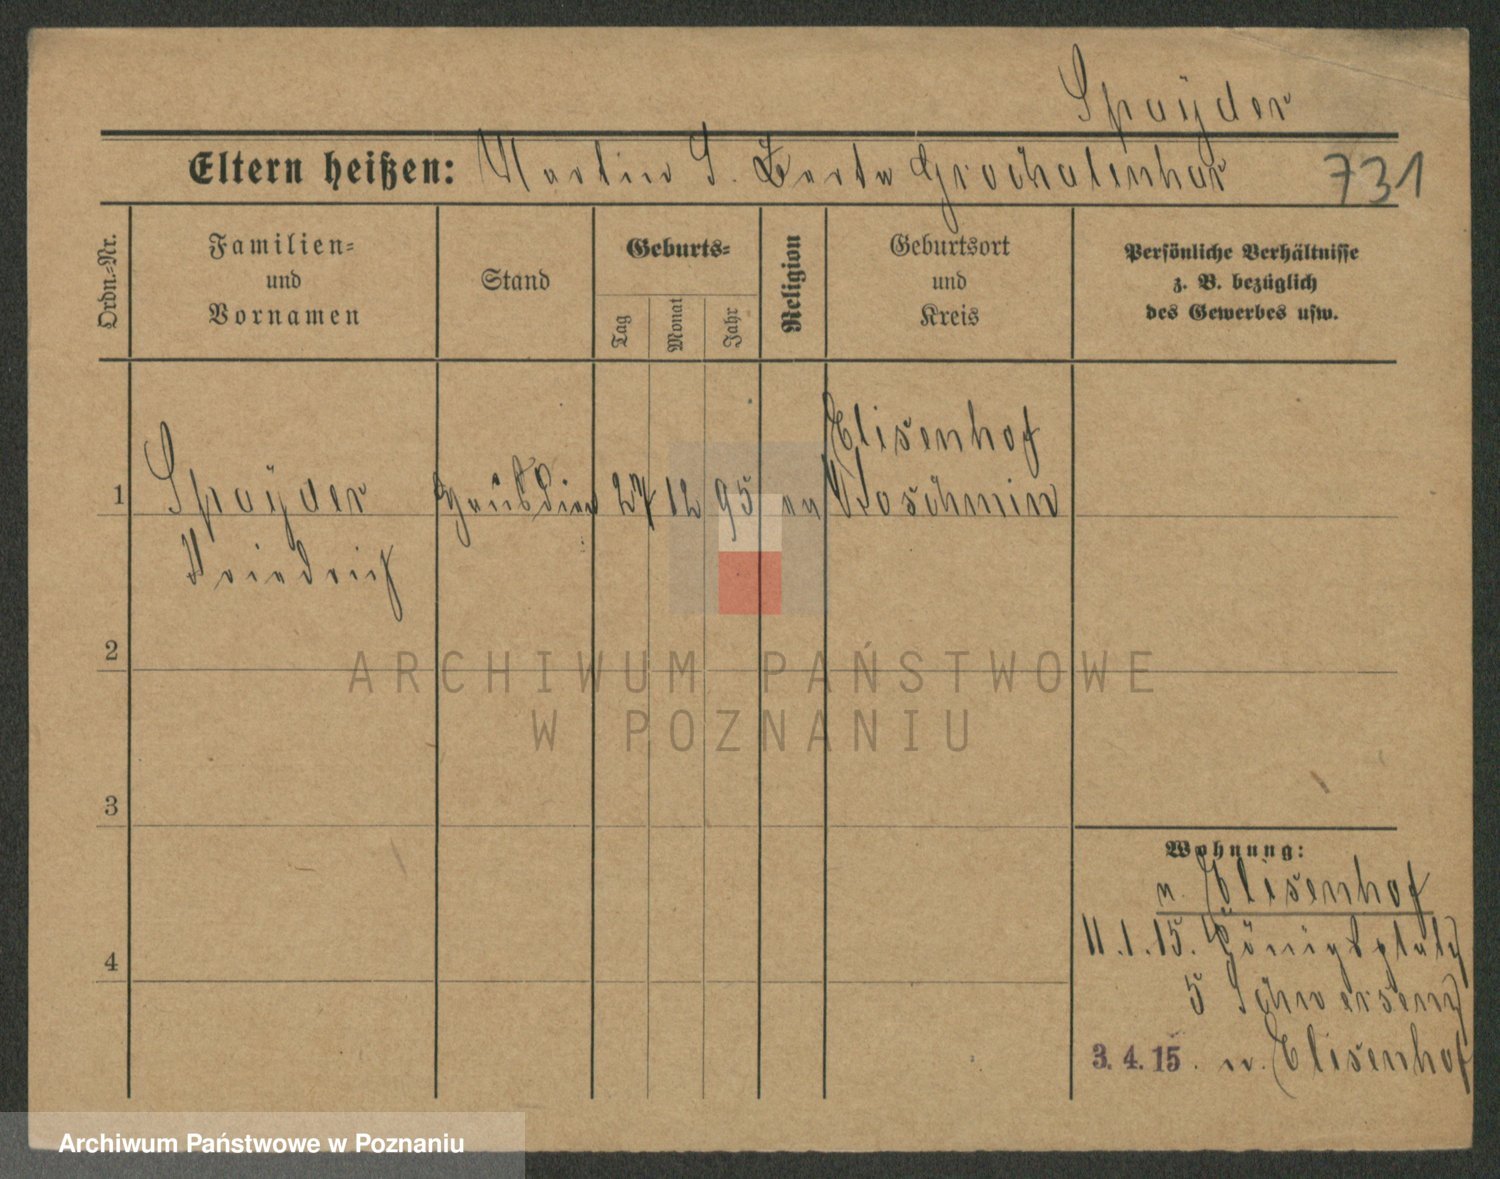 Spaÿder
Eltern heißen: Martin S. Berta
731
Ordn.-Nr.
Familien-
und
Vornamen
Stand
Geburts-
Tag
Monat
Jahr
Religion
Geburtsort
und
Kreis
Persönliche Verhältnisse
z. B. bezüglich
des Gewerbes usw.
1 Spaÿder 27 12 95 ev Elisenhof
Koschmin
Friedrich
2
3
4
Wohnung:
n. Elisenhof
11.1.15. Königsplatz
5 Schwersenz
3. 4. 15. n. Elisenhof
ARCHIWUM PAŃSTWOWE
W POZNANIU
Archiwum Państwowe w Poznaniu